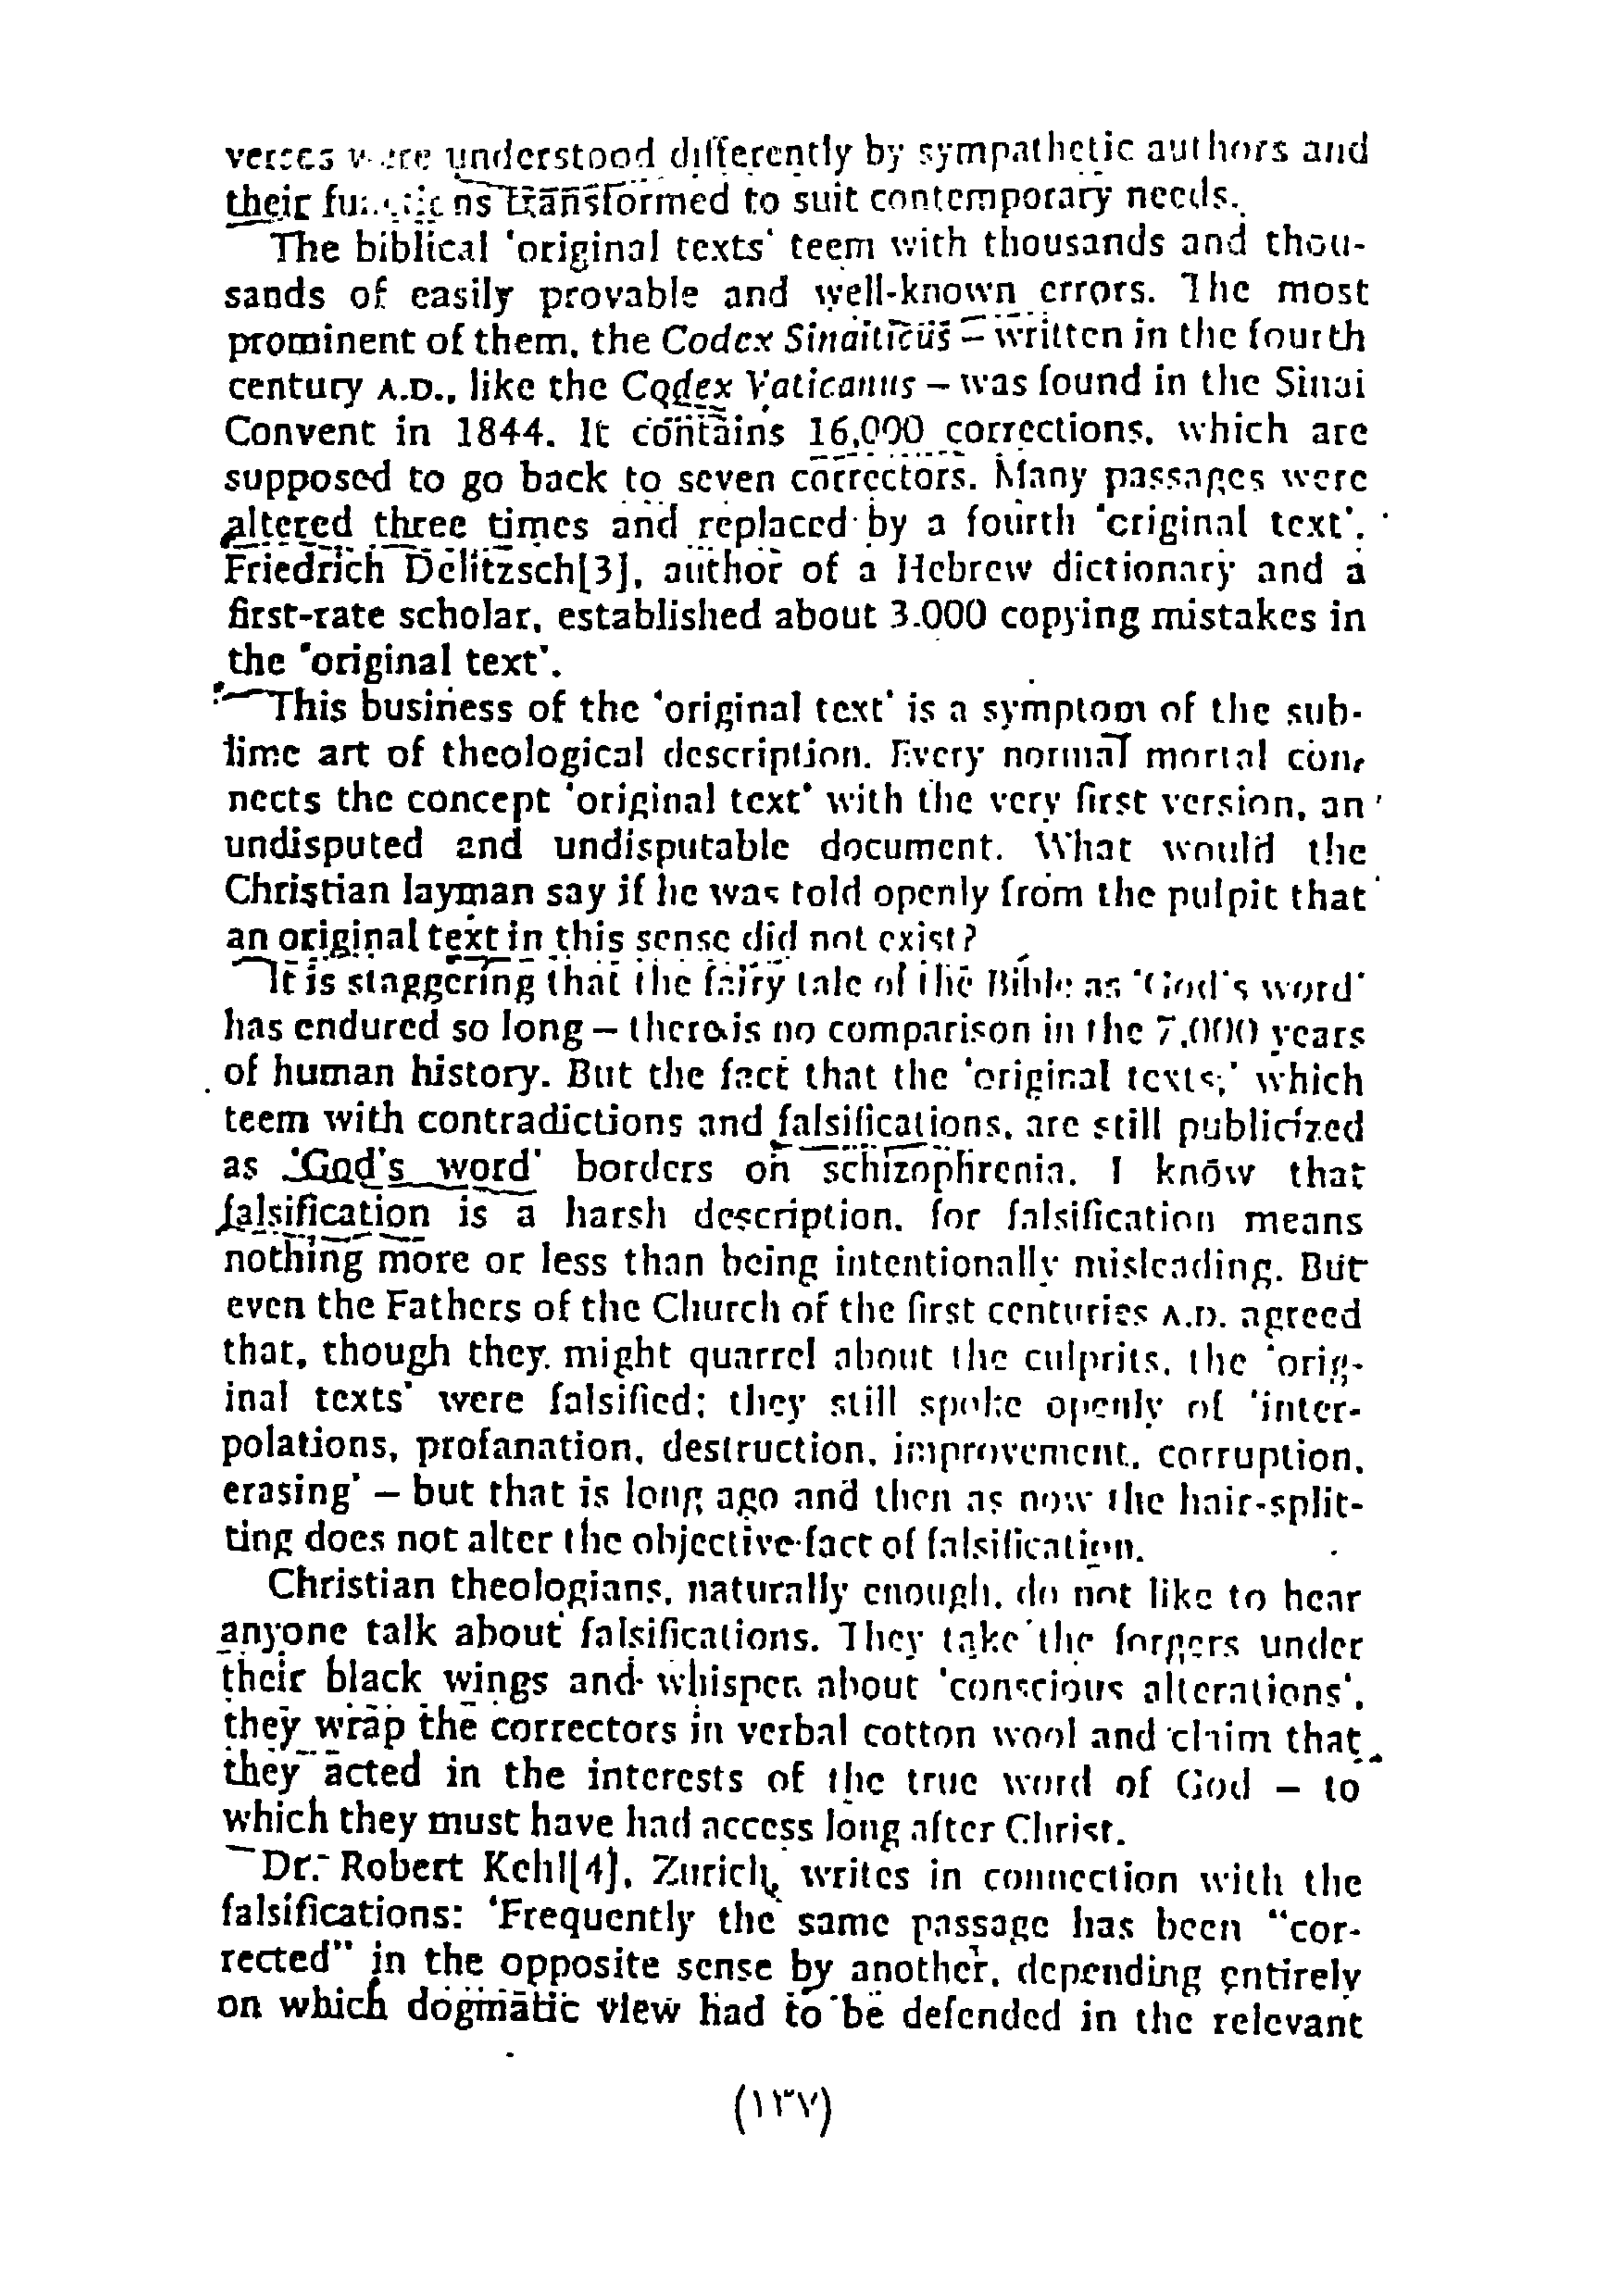 verses were understood differently by sympathetic authors and
their functions transformed to suit contemporary needs.
The biblical 'original texts' teem with thousands and thou-
sands of easily provable and well-known errors. The most
prominent of them, the Codex Sinaiticus – written in the fourth
century A.D., like the Codex Vaticanus – was found in the Sinai
Convent in 1844. It contains 16,000 corrections, which are
supposed to go back to seven correctors. Many passages were
altered three times and replaced by a fourth 'original text'.
Friedrich Delitzsch[3], author of a Hebrew dictionary and a
first-rate scholar, established about 3,000 copying mistakes in
the 'original text'.
This business of the 'original text' is a symptom of the sub-
lime art of theological description. Every normal mortal con-
nects the concept 'original text' with the very first version, an
undisputed and undisputable document. What would the
Christian layman say if he was told openly from the pulpit that
an original text in this sense did not exist?
It is staggering that the fairy tale of the Bible as 'God's word'
has endured so long – there is no comparison in the 7,000 years
of human history. But the fact that the 'original texts,' which
teem with contradictions and falsifications, are still publicized
as 'God's word' borders on schizophrenia. I know that
falsification is a harsh description, for falsification means
nothing more or less than being intentionally misleading. But
even the Fathers of the Church of the first centuries A.D. agreed
that, though they might quarrel about the culprits, the 'orig-
inal texts' were falsified; they still spoke openly of 'inter-
polations, profanation, destruction, improvement, corruption,
erasing' – but that is long ago and then as now the hair-split-
ting does not alter the objective fact of falsification.
Christian theologians, naturally enough, do not like to hear
anyone talk about falsifications. They take the forgers under
their black wings and whisper about 'conscious alterations',
they wrap the correctors in verbal cotton wool and claim that
they acted in the interests of the true word of God – to
which they must have had access long after Christ.
Dr. Robert Kehl[4], Zurich, writes in connection with the
falsifications: 'Frequently the same passage has been "cor-
rected" in the opposite sense by another, depending entirely
on which dogmatic view had to be defended in the relevant
(١٣٧)